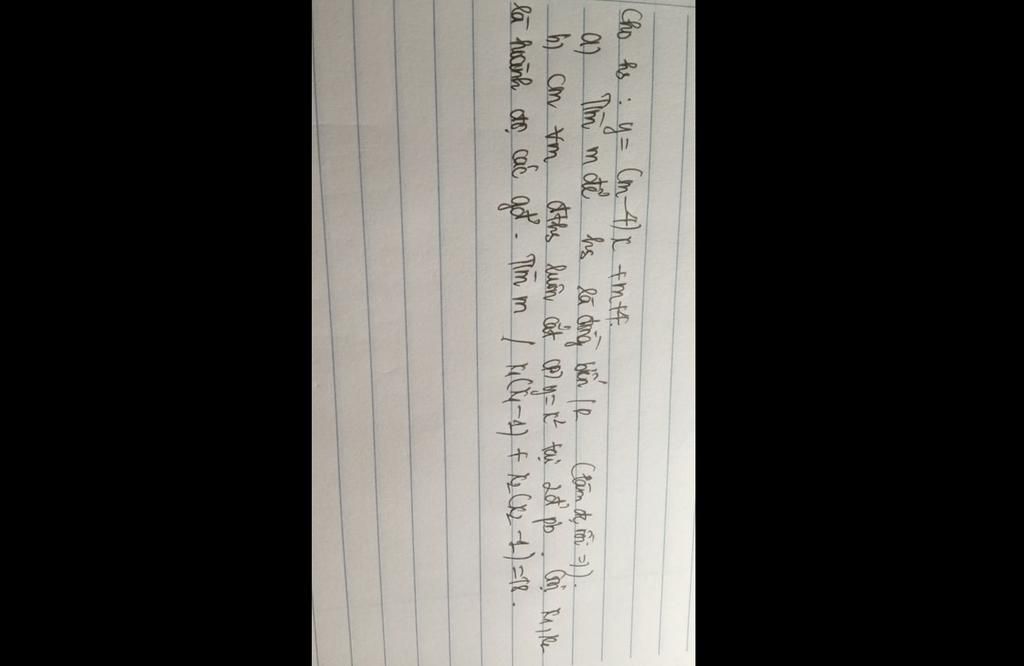 Cho hs : y = (m-4)x + m+4.
a) Tìm m để hs là đồng biến / R (làm đc rồi =)).
b) cm ∀m đths luôn cắt (P) y = x² tại 2đ pb. Gọi x₁, x₂
là hoành độ các gđ. Tìm m / x₁(x₁-1) + x₂(x₂-1) = 18.